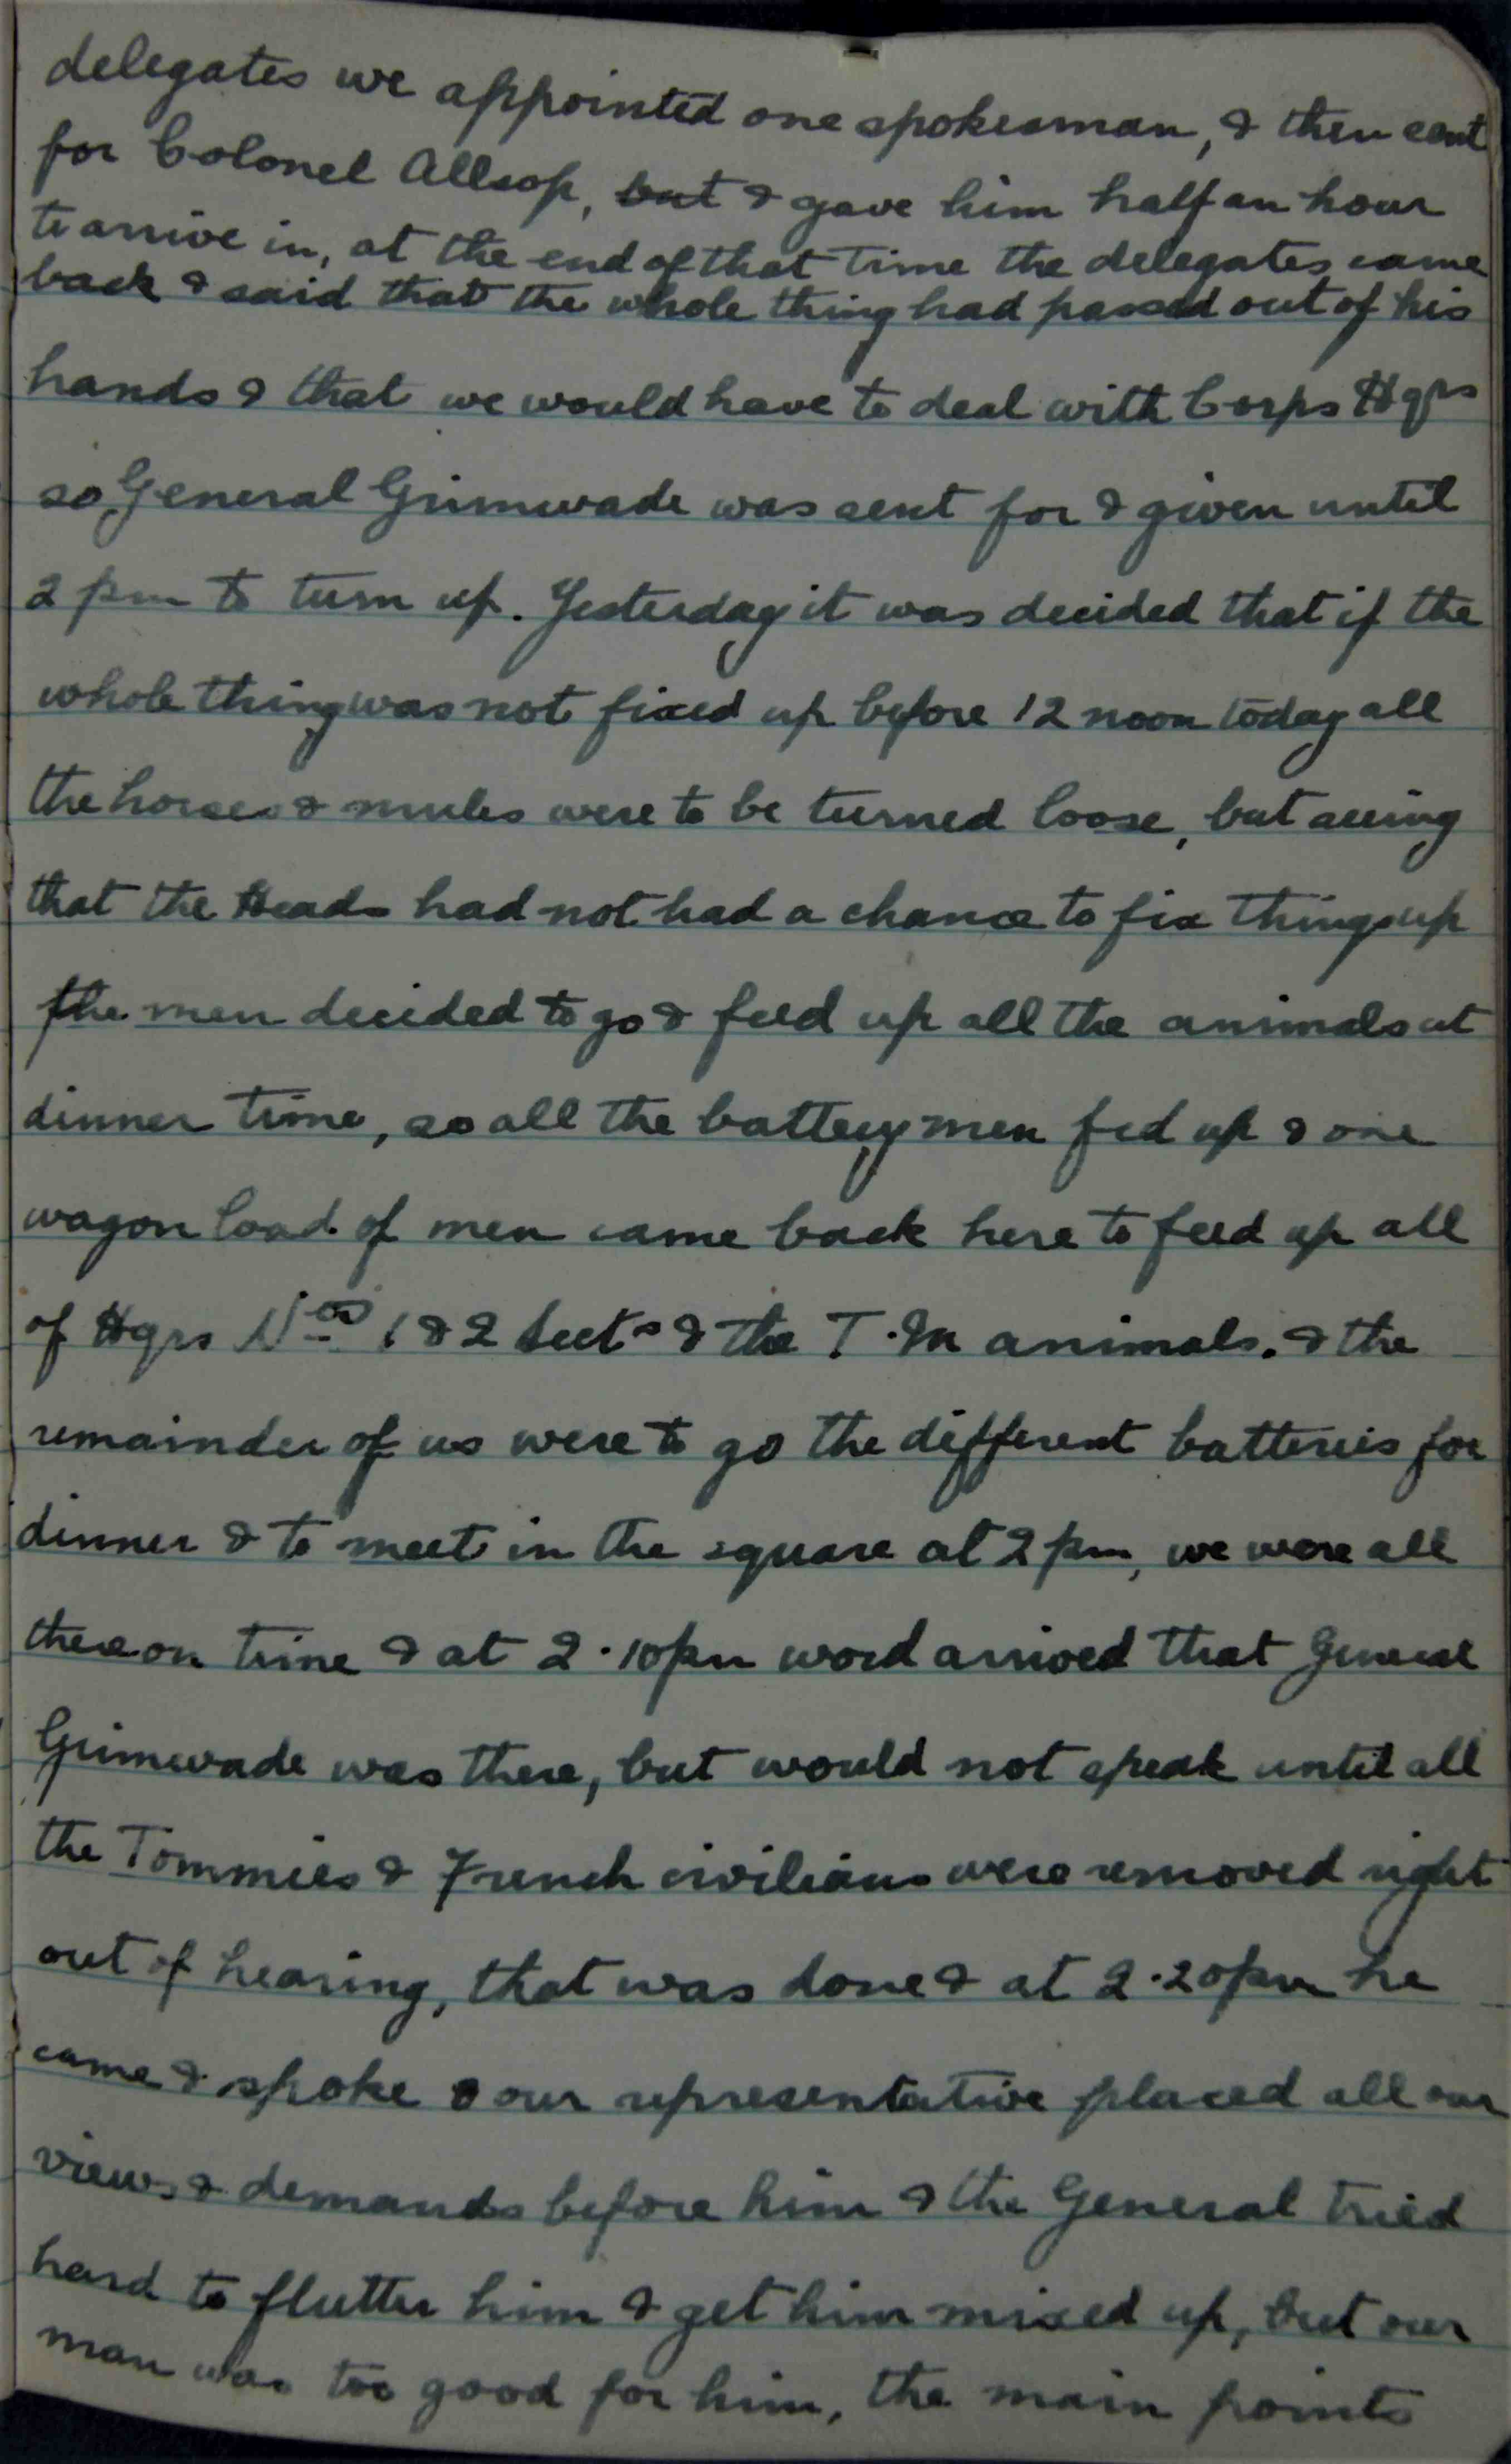 delegates we appointed one spokesman, & then sent
for Colonel Allsop, but & gave him half an hour
to arrive in, at the end of that time the delegates came
back & said that the whole thing had passed out of his
hands & that we would have to deal with Corps Hqrs
so General Grimwade was sent for & given until
2 pm to turn up. Yesterday it was decided that if the
whole thing was not fixed up before 12 noon today all
the horses & mules were to be turned loose, but seeing
that the Heads had not had a chance to fix things up
the men decided to go & feed up all the animals at
dinner time, so all the battery men fed up & one
wagon load of men came back here to feed up all
of Hqrs Nos 1 & 2 Sects & the T.M animals. & the
remainder of us were to go the different batteries for
dinner & to meet in the square at 2 pm, we were all
there on time & at 2.10 pm word arrived that General
Grimwade was there, but would not speak until all
the Tommies & French civilians were removed right
out of hearing, that was done & at 2.20 pm he
came & spoke our representative placed all our
views & demands before him & the General tried
hard to flutter him & get him mixed up, but our
man was too good for him, the main points